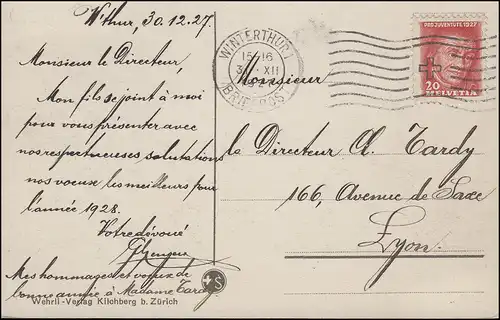 W'thur, 30.12.27.
Monsieur le Directeur,
Mon fils se joint à moi
pour vous présenter avec
nos respectueuses salutations
nos voeux les meilleurs pour
l'année 1928.
Votre dévoué
Mes hommages et voeux de
bonne année à Madame Tardy
Wehrli-Verlag Kilchberg b. Zürich
WINTERTHUR 1
15-16
XII
BRIEFPOST
PRO JUVENTUTE 1927
20
HELVETIA
Monsieur
le Directeur A. Tardy
166, Avenue de Saxe
Lyon.
S